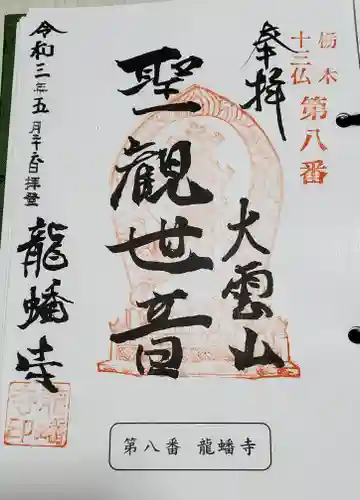 栃木
十三仏
第八番
奉拝
大雲山
聖観世音
令和三年五月二十六日拝登
龍蟠寺
第八番 龍蟠寺